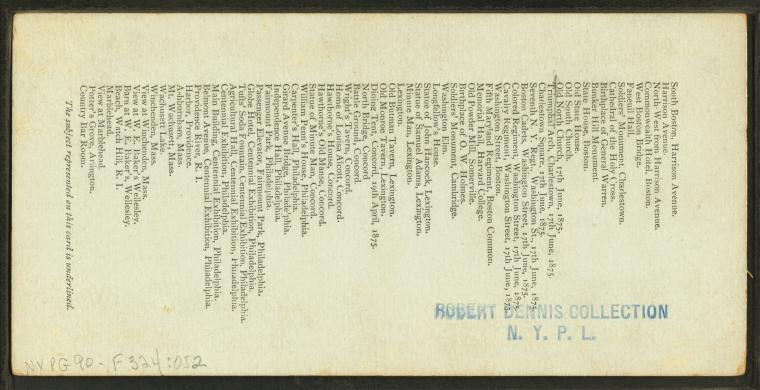 South Boston, Harrison Avenue.
Harrison Avenue.
North West from Harrison Avenue.
Commonwealth Hotel, Boston.
West Boston Bridge.
Faneuil Hall.
Soldiers' Monument, Charlestown.
Cathedral of the Holy Cross.
Birthplace of General Warren.
Bunker Hill Monument.
State House, Boston.
Old State House.
Old South Church.
Old North, 17th June, 1875.
Triumphal Arch, Charlestown, 17th June, 1875.
Charlestown Square, 17th June, 1875.
Seventh N. Y. Reg't, Washington St., 17th June, 1875.
Boston Cadets, Washington Street, 17th June, 1875.
Colored Regiment, Washington Street, 17th June, 1875.
Cavalry Regiment, Washington Street, 17th June, 1875.
Washington Street, Boston.
Fifth Maryland Regiment, Boston Common.
Memorial Hall, Harvard College.
Old Powder Mill, Somerville.
Birthplace of O. W. Holmes.
Soldiers' Monument, Cambridge.
Washington Elm.
Longfellow's House.
Statue of John Hancock, Lexington.
Statue of Samuel Adams, Lexington.
Minute Man, Lexington.
Lexington.
Old Buckman Tavern, Lexington.
Old Monroe Tavern, Lexington.
Dining Tent, Concord, 19th April, 1875.
North Bridge, Concord.
Battle Ground, Concord.
Wright's Tavern, Concord.
Home of Louisa Alcott, Concord.
Hawthorne's House, Concord.
Hawthorne's Old Manse, Concord.
Statue of Minute Man, Concord.
William Penn's House, Philadelphia.
Carpenter's Hall, Philadelphia.
Girard Avenue Bridge, Philadelphia.
Independence Hall, Philadelphia.
Fairmount Park, Philadelphia.
Passenger Elevator, Fairmount Park, Philadelphia.
Globe Hotel, Centennial Exhibition, Philadelphia.
Tufts' Soda Fountain, Centennial Exhibition, Philadelphia.
Agricultural Hall, Centennial Exhibition, Philadelphia.
Centennial Exhibition, Philadelphia.
Main Building, Centennial Exhibition, Philadelphia.
Belmont Avenue, Centennial Exhibition, Philadelphia.
Providence, R. I.
Harbor, Providence.
Ashburnham, Mass.
Mt. Wachusett, Mass.
Wachusett Lake.
Winchenden, Mass.
View at Winchenden, Mass.
View at W. E. Baker's, Wellesley.
Barn at W. E. Baker's, Wellesley.
Beach, Watch Hill, R. I.
Marblehead.
View at Marblehead.
Potter's Grove, Arlington.
Country Bar Room.
The subject represented on this card is underlined.
ROBERT DENNIS COLLECTION
N. Y. P. L.
NYPG90-F324:052